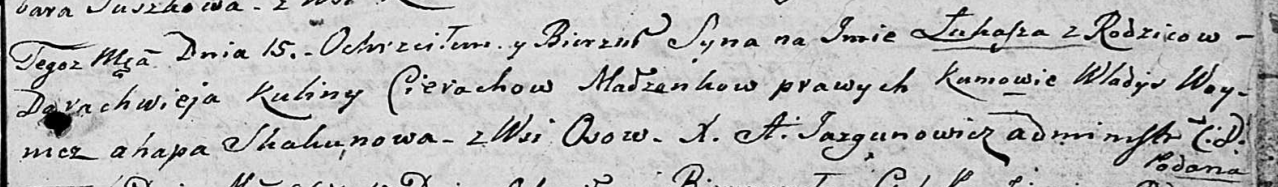 bara Suszkowa - z Wsi
Tegoz Mca Dnia 15. - Ochrzciłem y Bierzm Syna na Imie Łukasza z Rodzicow -
Darachwieja Kuliny Cierachow Małzenkow prawych Kumowie Władys Woy-
nicz ahapa Skakunowa - z Wsi Osow - X. A. Jazgunowicz administr C. D.
Podania
Dnia